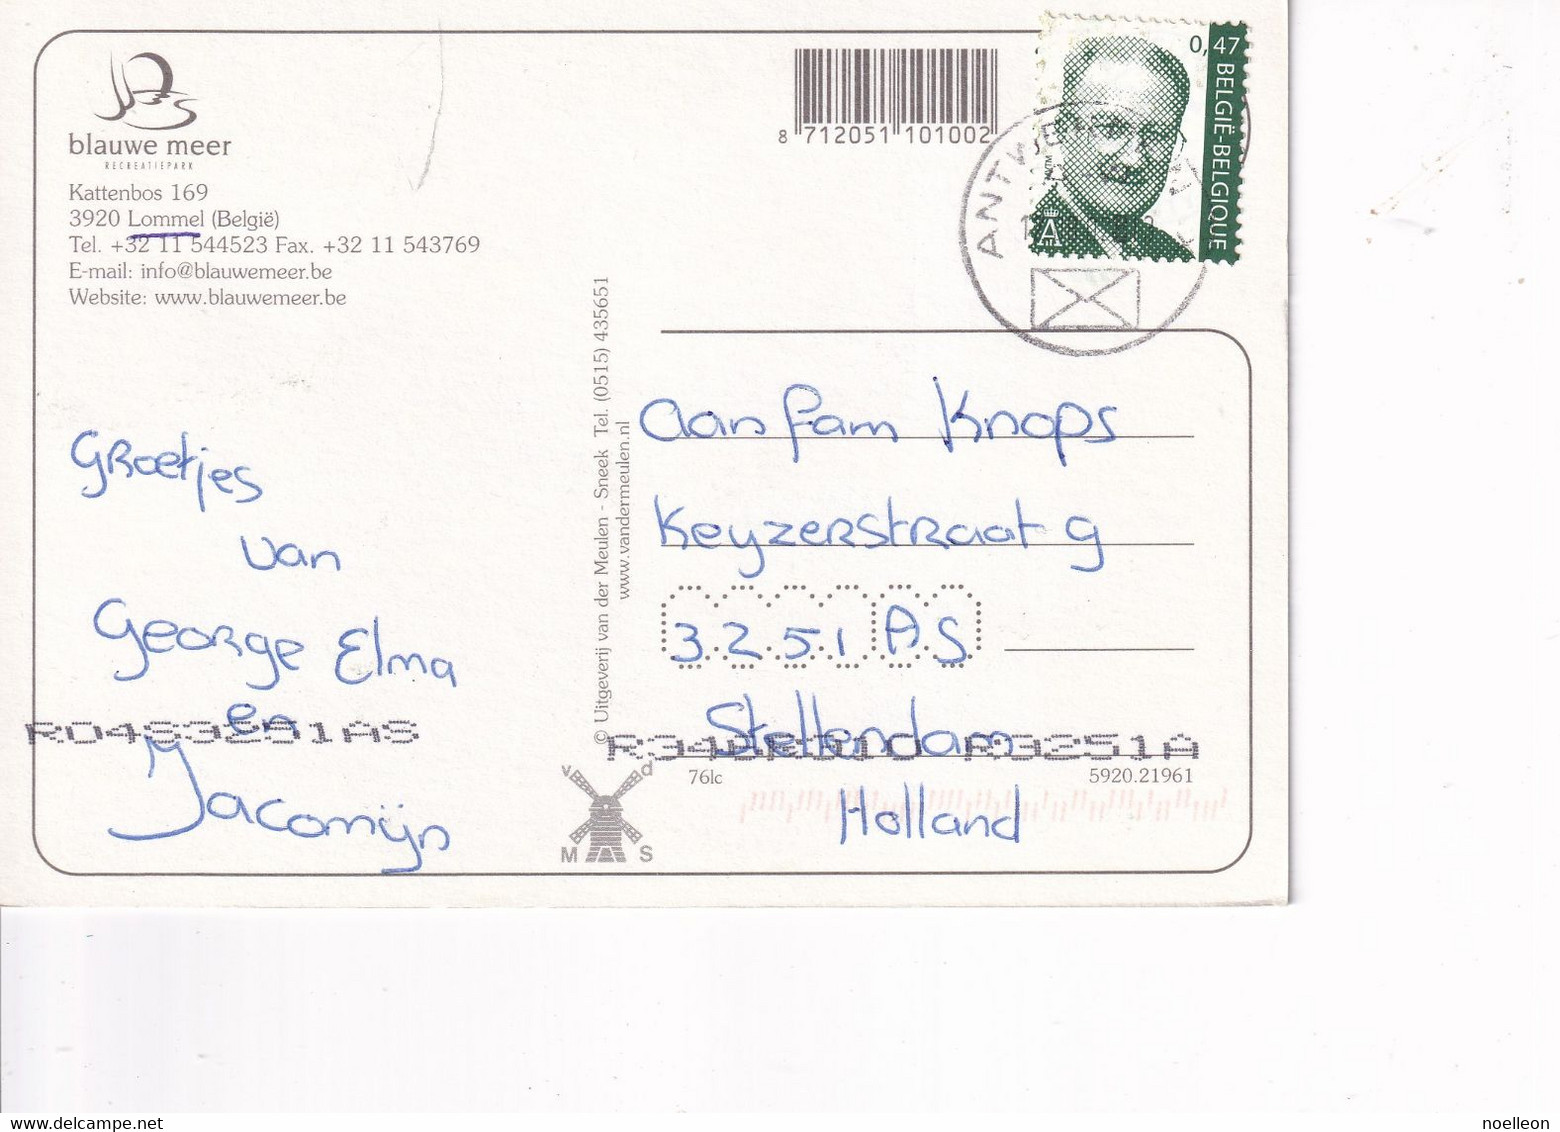 blauwe meer
RECREATIEPARK
Kattenbos 169
3920 Lommel (België)
Tel. +32 11 544523 Fax. +32 11 543769
E-mail: info@blauwemeer.be
Website: www.blauwemeer.be
8 712051 101002
0,47 BELGIË-BELGIQUE
© Uitgeverij van der Meulen - Sneek Tel. (0515) 435651
www.vandermeulen.nl
Groetjes
van
George Elma
en
Jacomijn
Aan fam Knops
Keyzerstraat 9
3251 AS
Stellendam
Holland
RD4S3251AS
R3251A
76lc
5920.21961
v d
M S
delcampe.net
noelleon